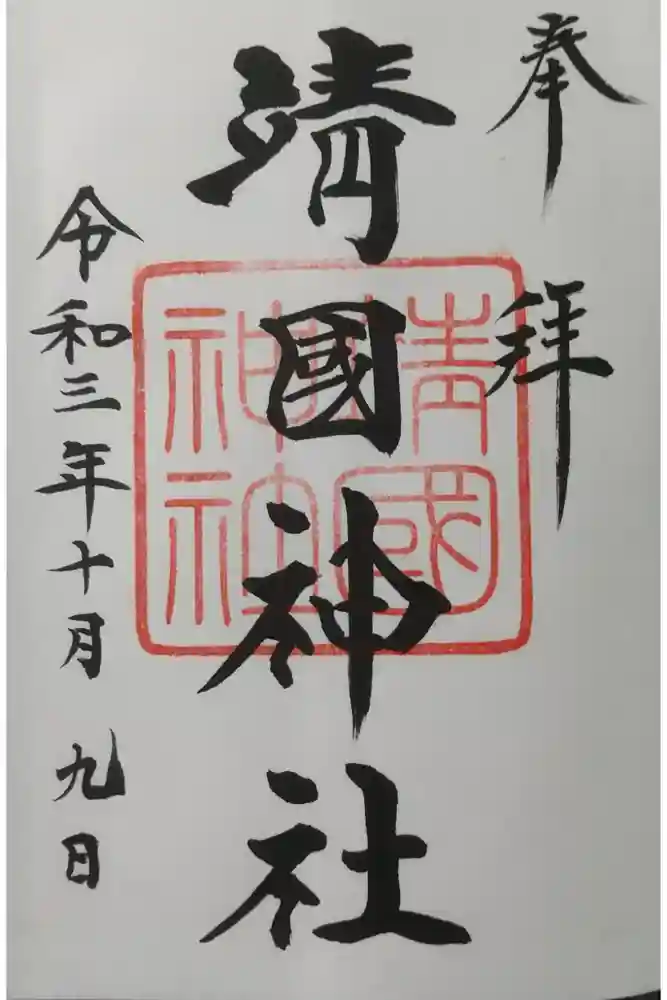 奉拝
靖國神社
靖國神社
令和三年十月九日